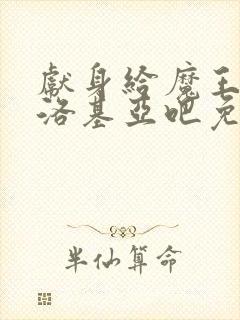 獻身給魔王
洛基亞吧免
半仙算命